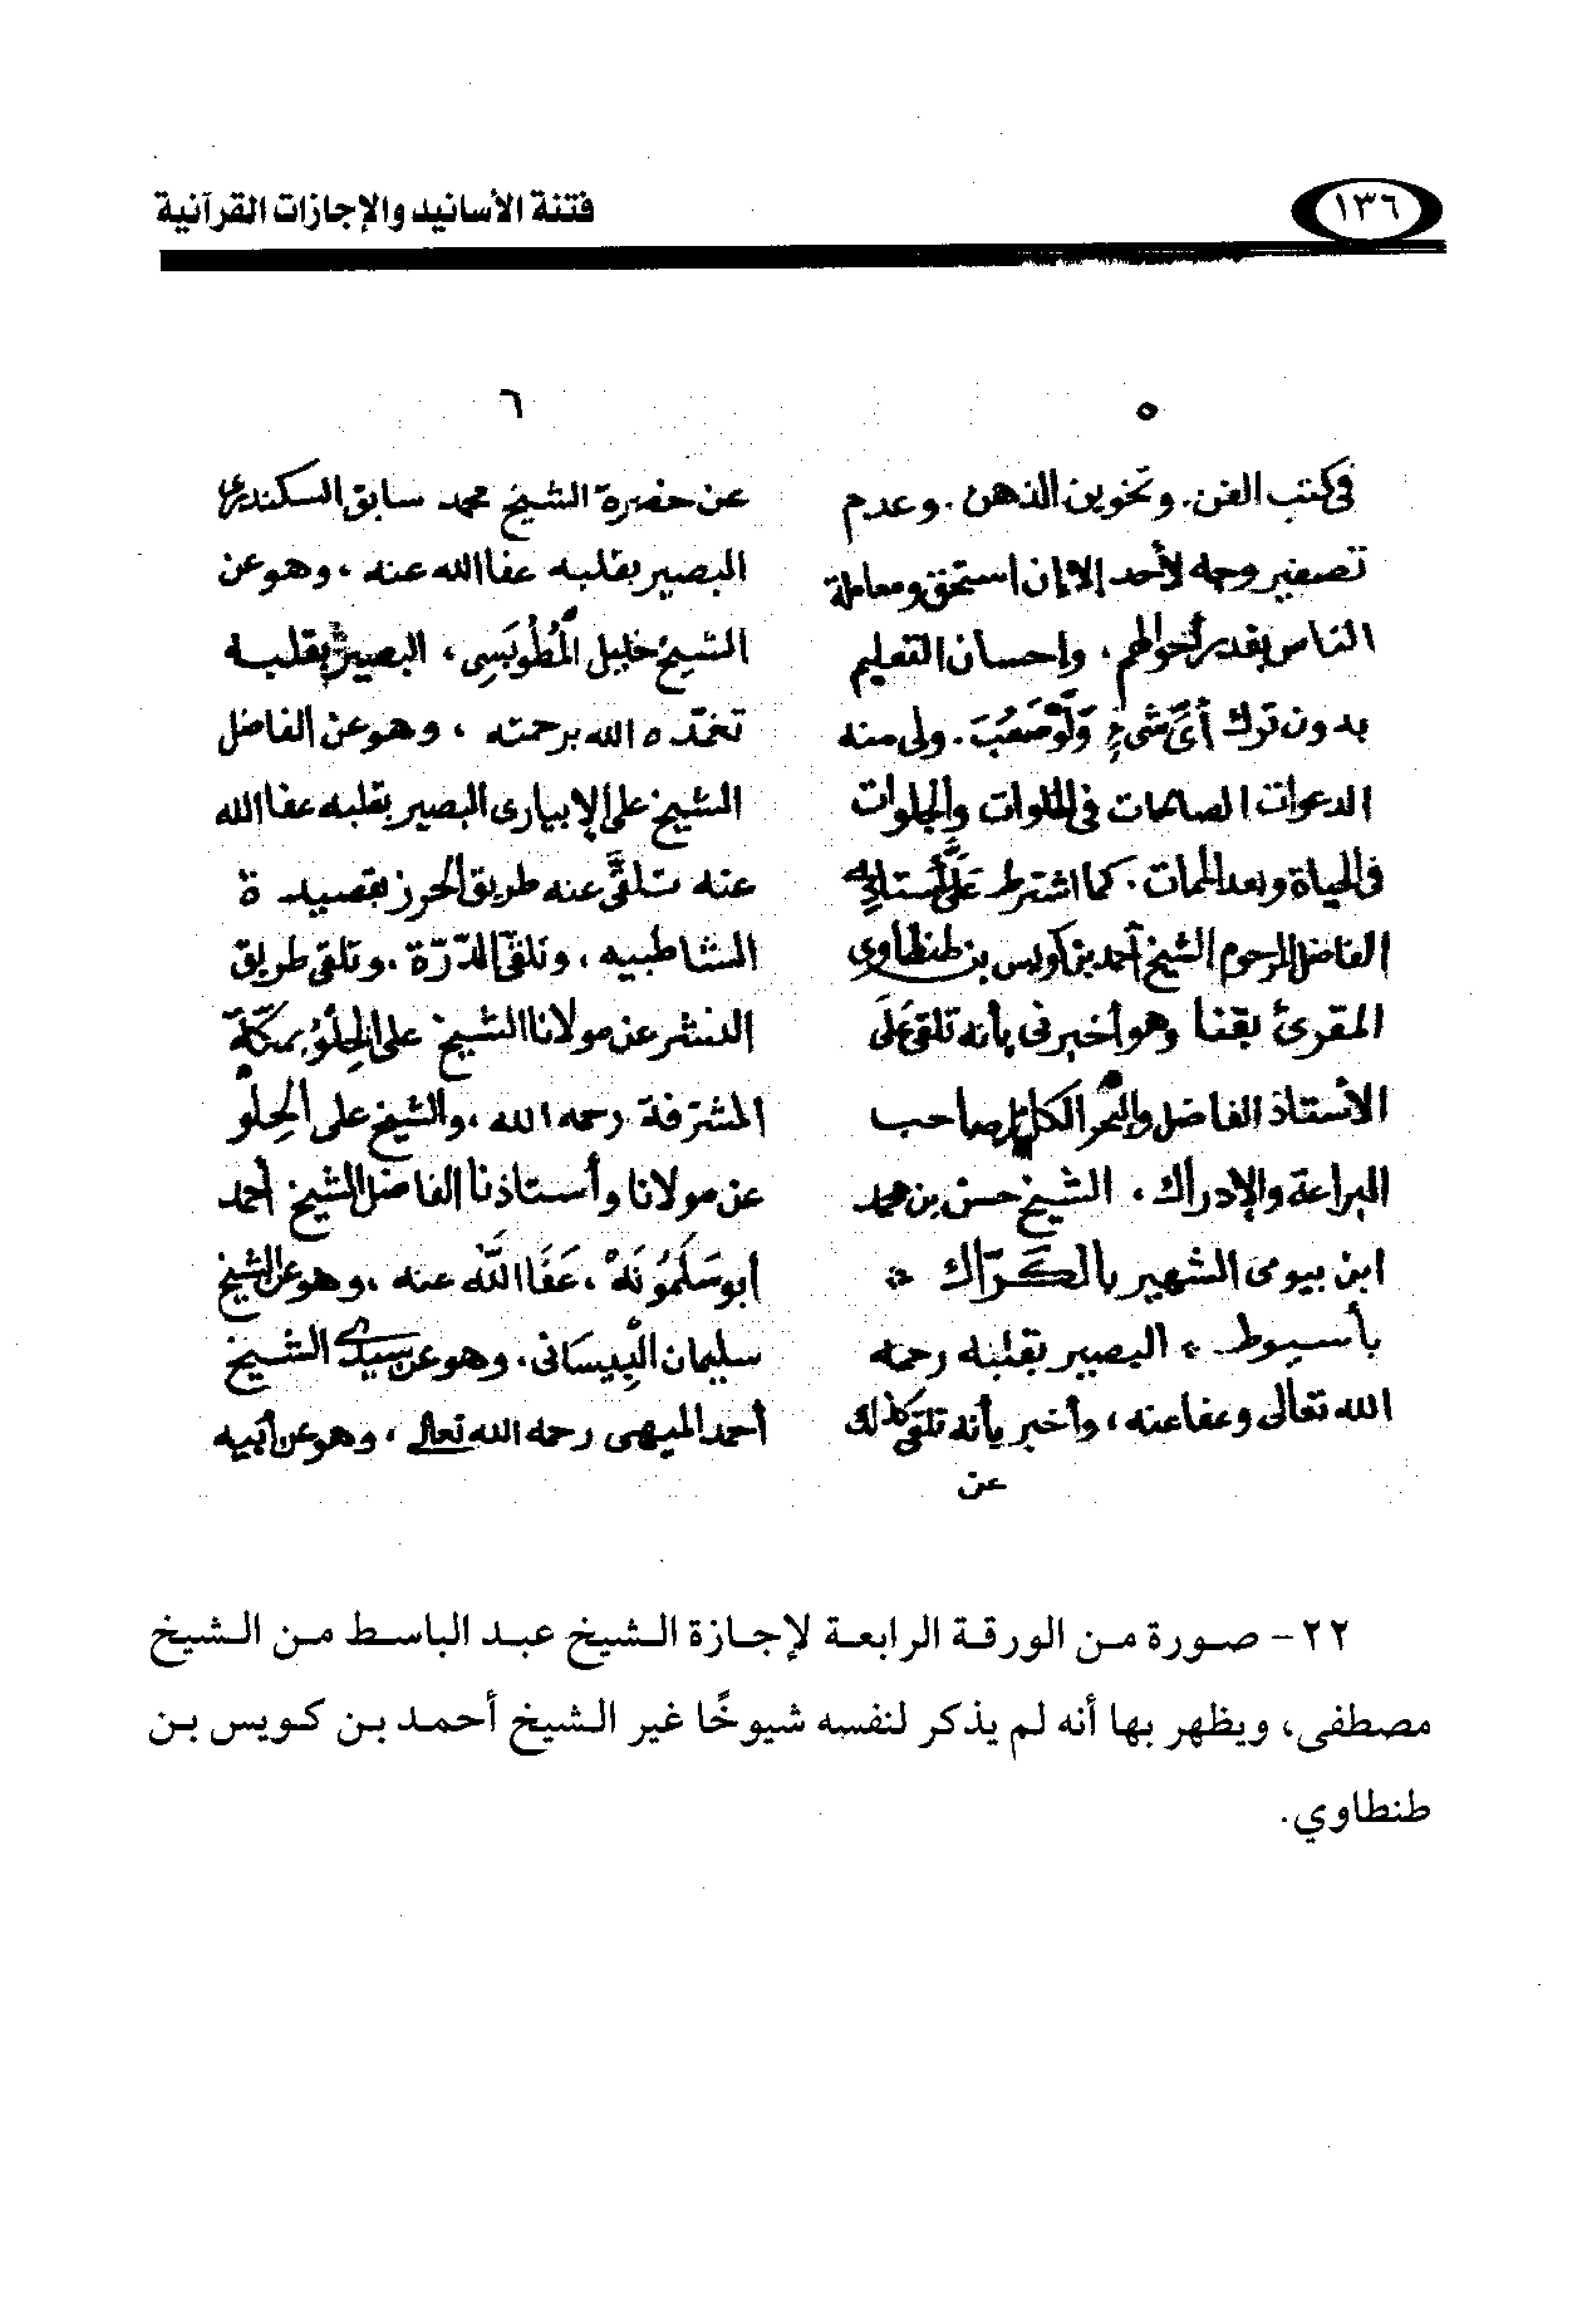 ١٣٦
فتنة الأسانيد والإجازات القرآنية
٥
فى كتب الفن. وتخوين الذهن. وعدم
تصغير وجه لأحد إلا إن استحق ومعاملة
الناس بقدر أحوالهم، وإحسان التعليم
بدون ترك أىّ شىءٍ وَلَو صَعُبَ. ولى منه
الدعوات الصالحات فى الخلوات والجلوات
فى الحياة وبعد الممات. كما اشترط عَلَىَّ أستاذِى
الفاضل المرحوم الشيخ أحمد بن كويس بن طنطاوى
المقرئ بقنا وهو أخبرنى بأنه تلقى عَلَى
الأستاذ الفاضل والبحر الكامل صاحب
البراعة والإدراك، الشيخ حسن بن محمد
ابن بيومى الشهير بالكَرّاك *
بأسيوط * البصير بقلبه رحمه
الله تعالى وعفا عنه، وأخبر بأنه تلقى كذلك
عن
٦
عن حضرة الشيخ محمد سابق السكندرى
البصير بقلبه عفا الله عنه، وهو عن
الشيخ خليل المُطُوبَسِى، البصير بقلبه
تغمّده الله برحمته، وهو عن الفاضل
الشيخ على الإبيارى البصير بقلبه عفا الله
عنه تلقَّى عنه طريق الحرز بقصيدة
الشاطبيه، وتلقى الدّرّة. وتلقى طريق
النشر عن مولانا الشيخ على الحِلْوُ بمكّة
المشرفة رحمه الله، والشيخ على الحِلْو
عن مولانا وأستاذنا الفاضل الشيخ أحمد
أبو سَلَمُونَهْ، عَفَا اللَّه عنه، وهو عن الشيخ
سليمان البِيسَانى. وهو عن سيدى الشيخ
أحمد الميهى رحمه الله تعالى، وهو عن أبيه
٢٢- صورة من الورقة الرابعة لإجازة الشيخ عبد الباسط من الشيخ
مصطفى، ويظهر بها أنه لم يذكر لنفسه شيوخًا غير الشيخ أحمد بن كويس بن
طنطاوي.